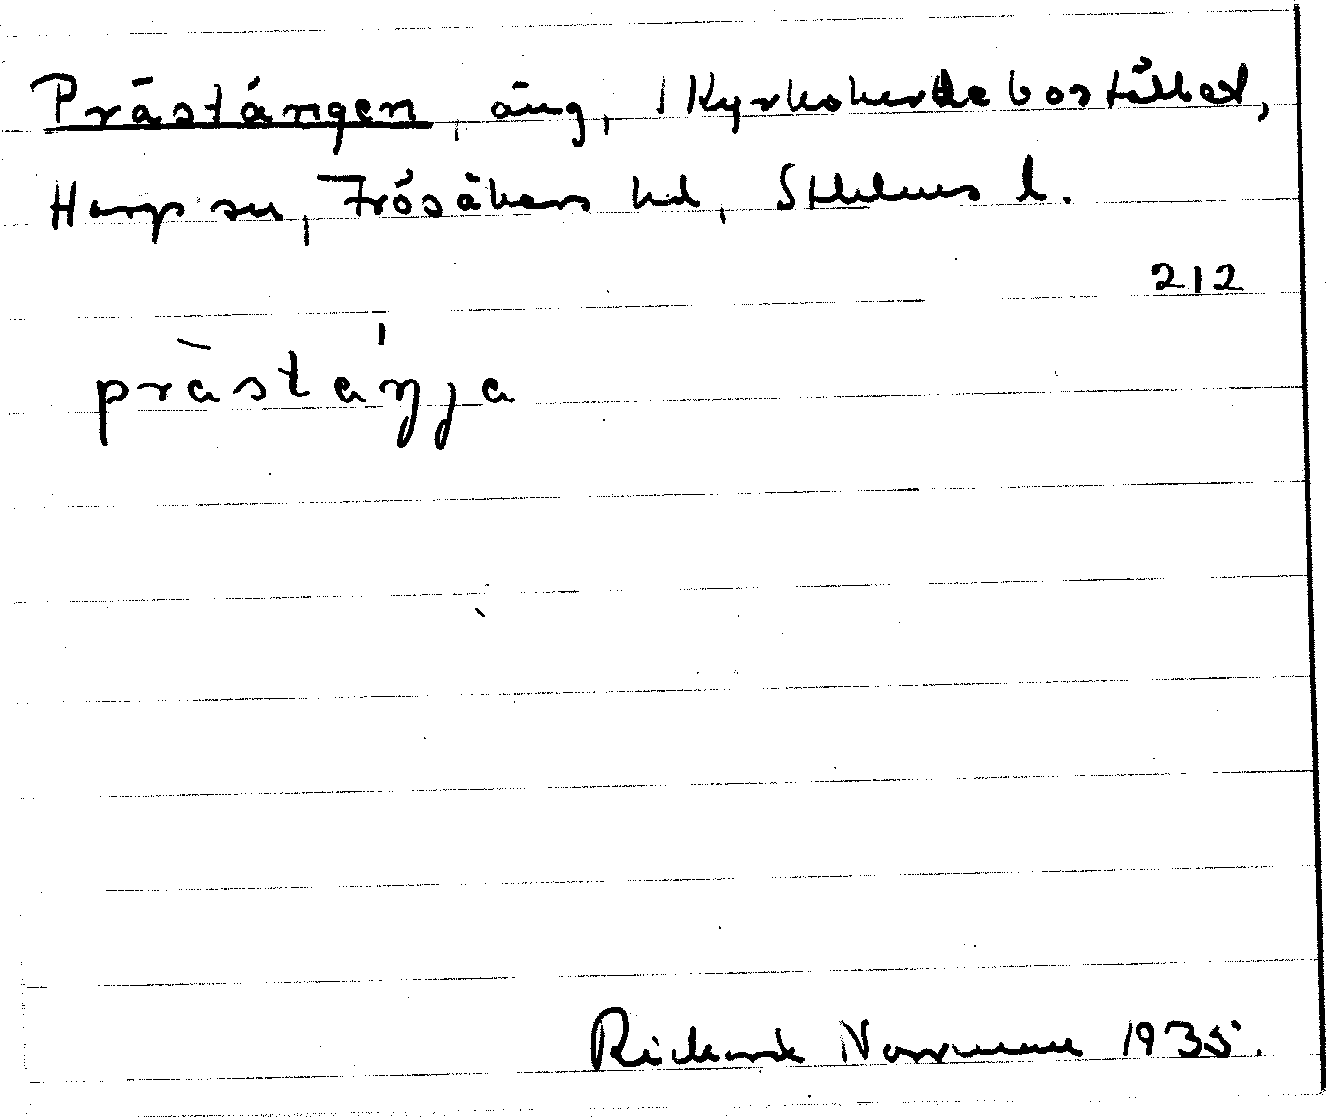 Prästängen, äng, 1 Kyrkoherdebostället,
Hargs sn, Frösåkers hd, Sthlms l.
212
prästäŋja
Rickard Norrman 1935.